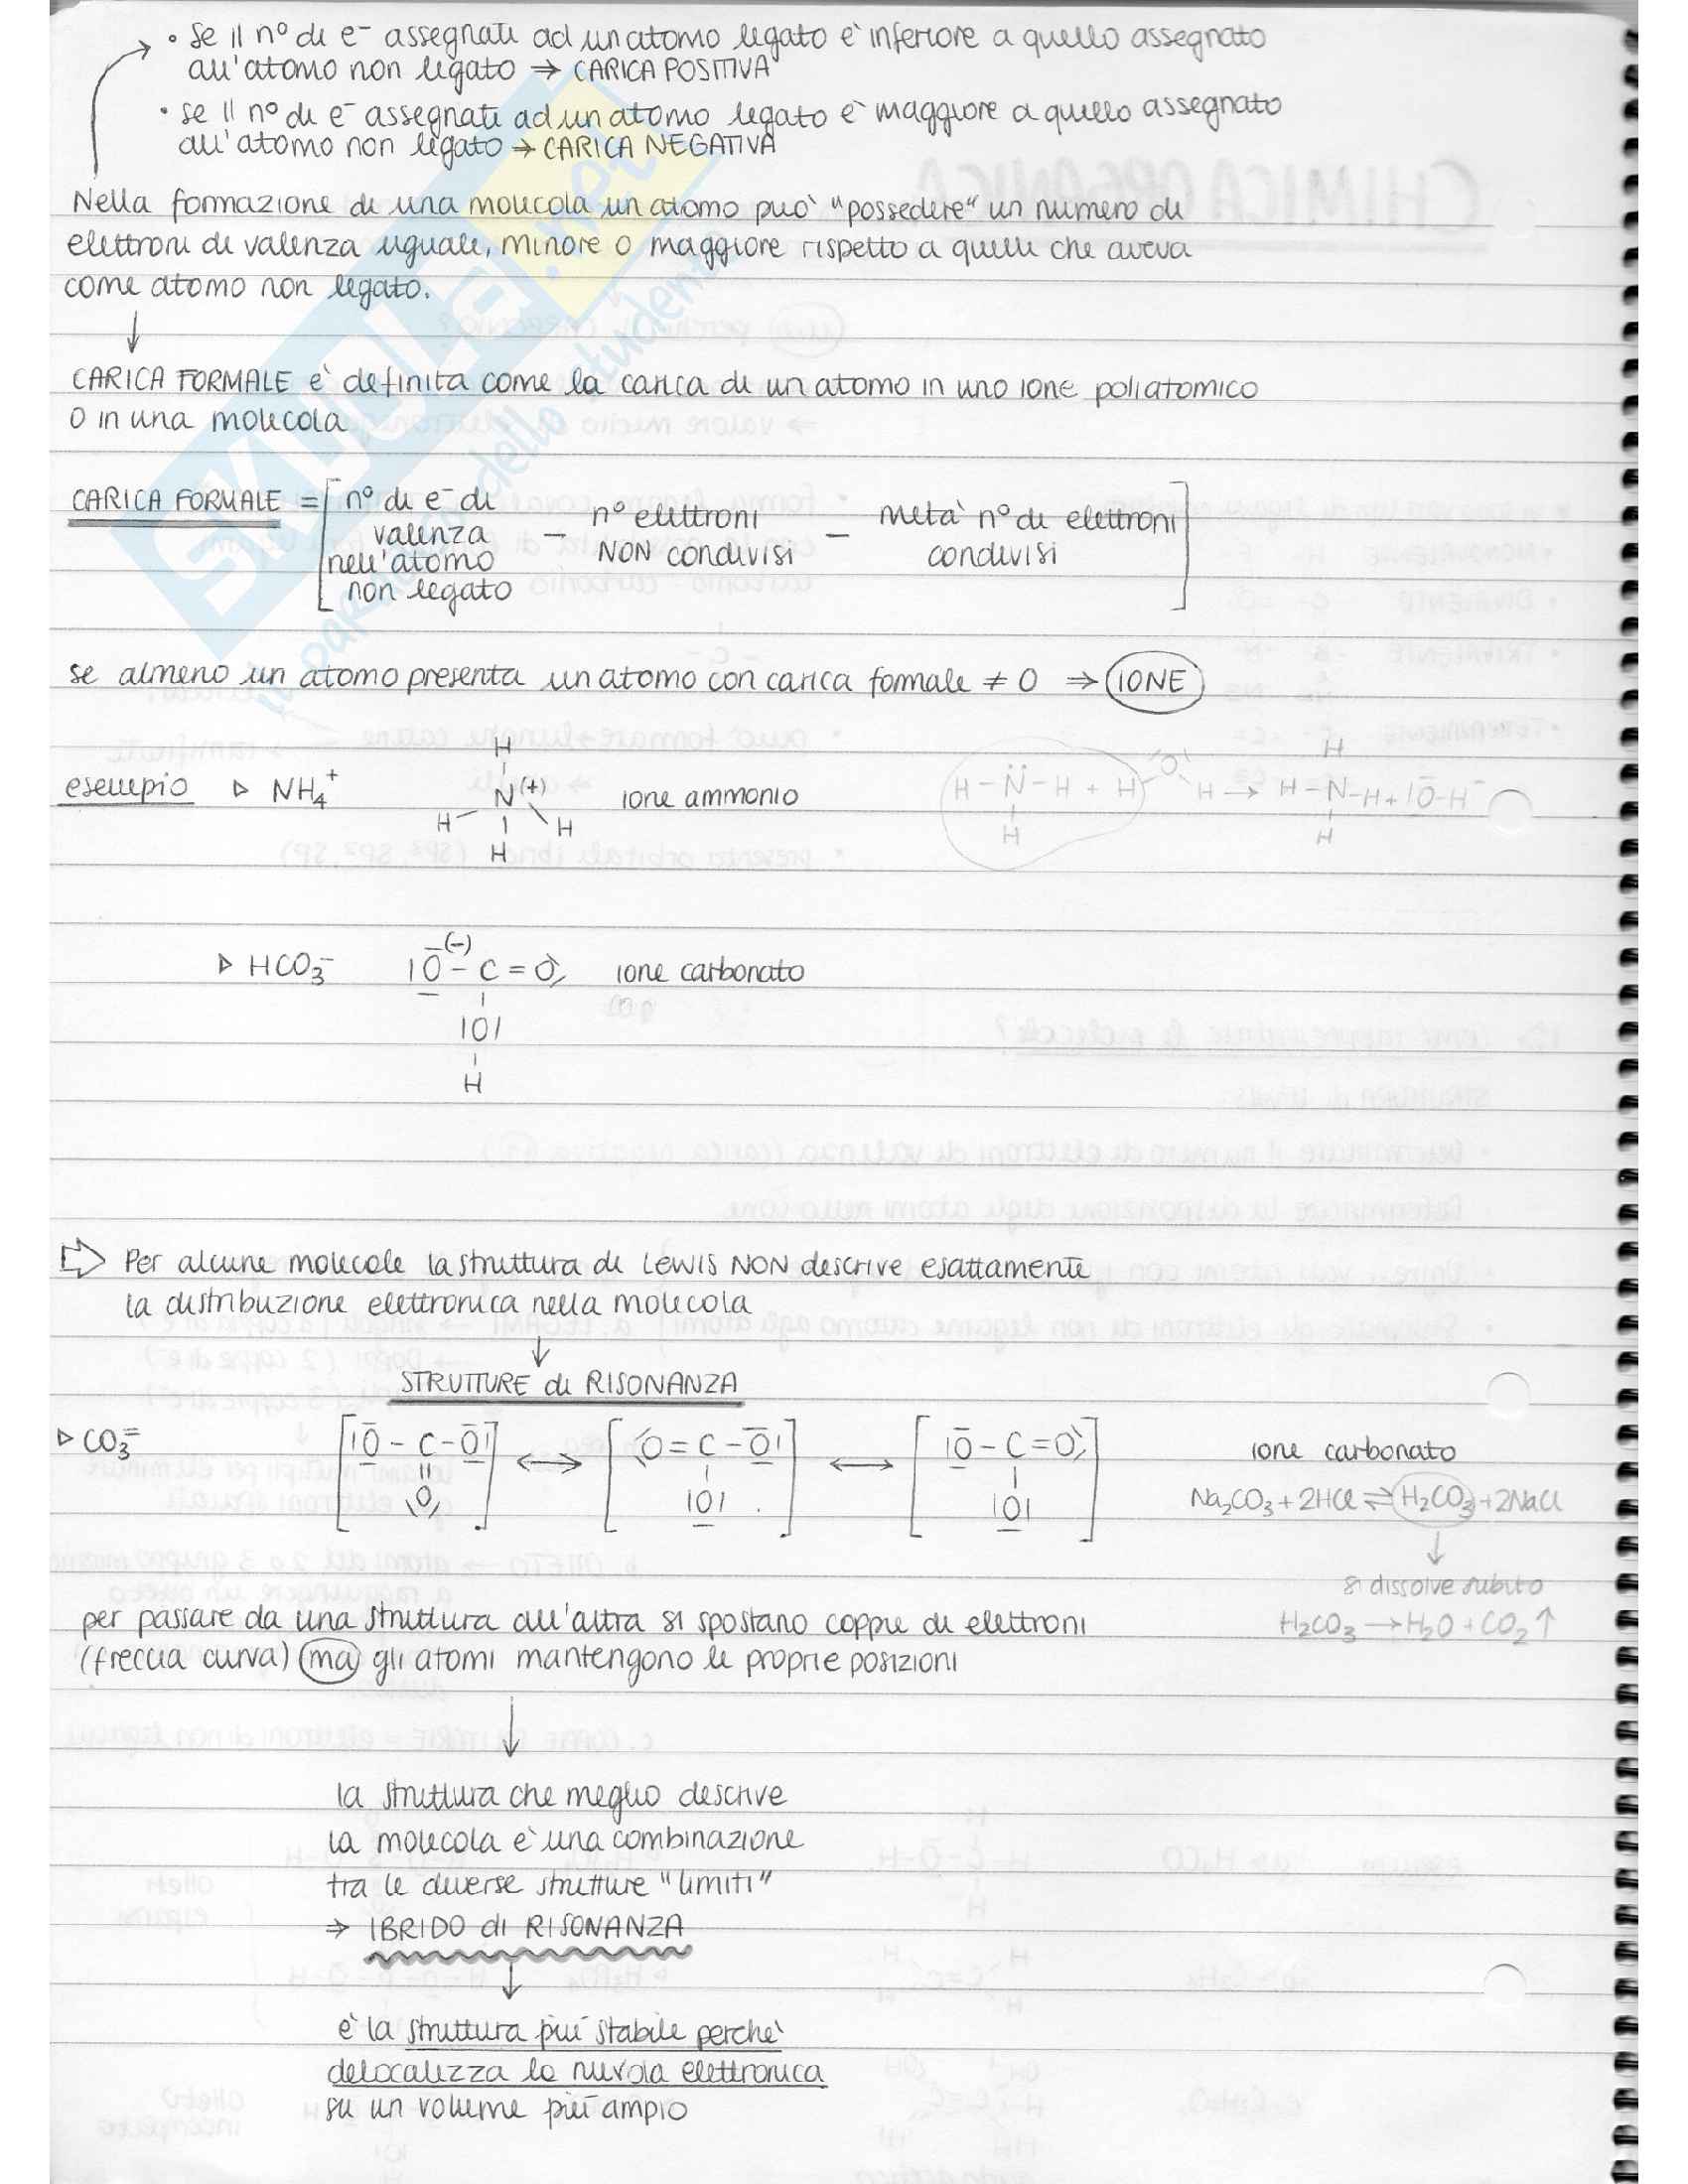 • Se il n° di e⁻ assegnati ad un atomo legato è inferiore a quello assegnato
all'atomo non legato ⇒ CARICA POSITIVA
• se il n° di e⁻ assegnati ad un atomo legato è maggiore a quello assegnato
all'atomo non legato → CARICA NEGATIVA
Nella formazione di una molecola un atomo può "possedere" un numero di
elettroni di valenza uguale, minore o maggiore rispetto a quelli che aveva
come atomo non legato.
↓
CARICA FORMALE è definita come la carica di un atomo in uno ione poliatomico
o in una molecola
CARICA FORMALE = [n° di e⁻ di valenza nell'atomo non legato − n° elettroni NON condivisi − metà n° di elettroni condivisi]
se almeno un atomo presenta un atomo con carica formale ≠ 0 ⇒ IONE
H
esempio ▷ NH₄⁺ N(+) ione ammonio
H H
H
H
H-N̈-H + H O H → H-N-H + |O̅-H⁻
H H
▷ HCO₃⁻ |O̅(-) - C = O ione carbonato
|O|
H
⇨ Per alcune molecole la struttura di LEWIS NON descrive esattamente
la distribuzione elettronica nella molecola
↓
STRUTTURE di RISONANZA
▷ CO₃⁼ [|O̅ - C - O̅|] ↔ [O = C - O̅|] ↔ [|O̅ - C = O] ione carbonato
O |O| |O|
Na₂CO₃ + 2HCl ⇌ H₂CO₃ + 2NaCl
↓
si dissolve subito
H₂CO₃ → H₂O + CO₂↑
per passare da una struttura all'altra si spostano coppie di elettroni
(freccia curva) ma gli atomi mantengono le proprie posizioni
↓
la struttura che meglio descrive
la molecola è una combinazione
tra le diverse strutture "limiti"
⇒ IBRIDO di RISONANZA
↓
è la struttura più stabile perchè
delocalizza la nuvola elettronica
su un volume più ampio
SKUOLA.net
il paradiso dello studente